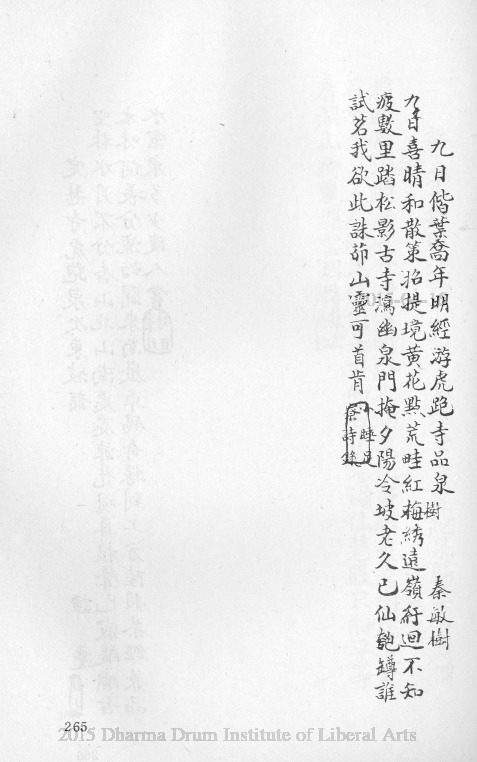 九日偕葉喬年明經游虎跑寺品泉　秦敏樹
九日喜晴和散策招提境黃花點荒畦紅樹梅綉遠嶺紆迴不知
疲數里踏松影古寺瀉幽泉門掩夕陽冷坡老久已仙匏罇誰
試茗我欲此誅茆山靈可首肯
小睡足
265
2015 Dharma Drum Institute of Liberal Arts